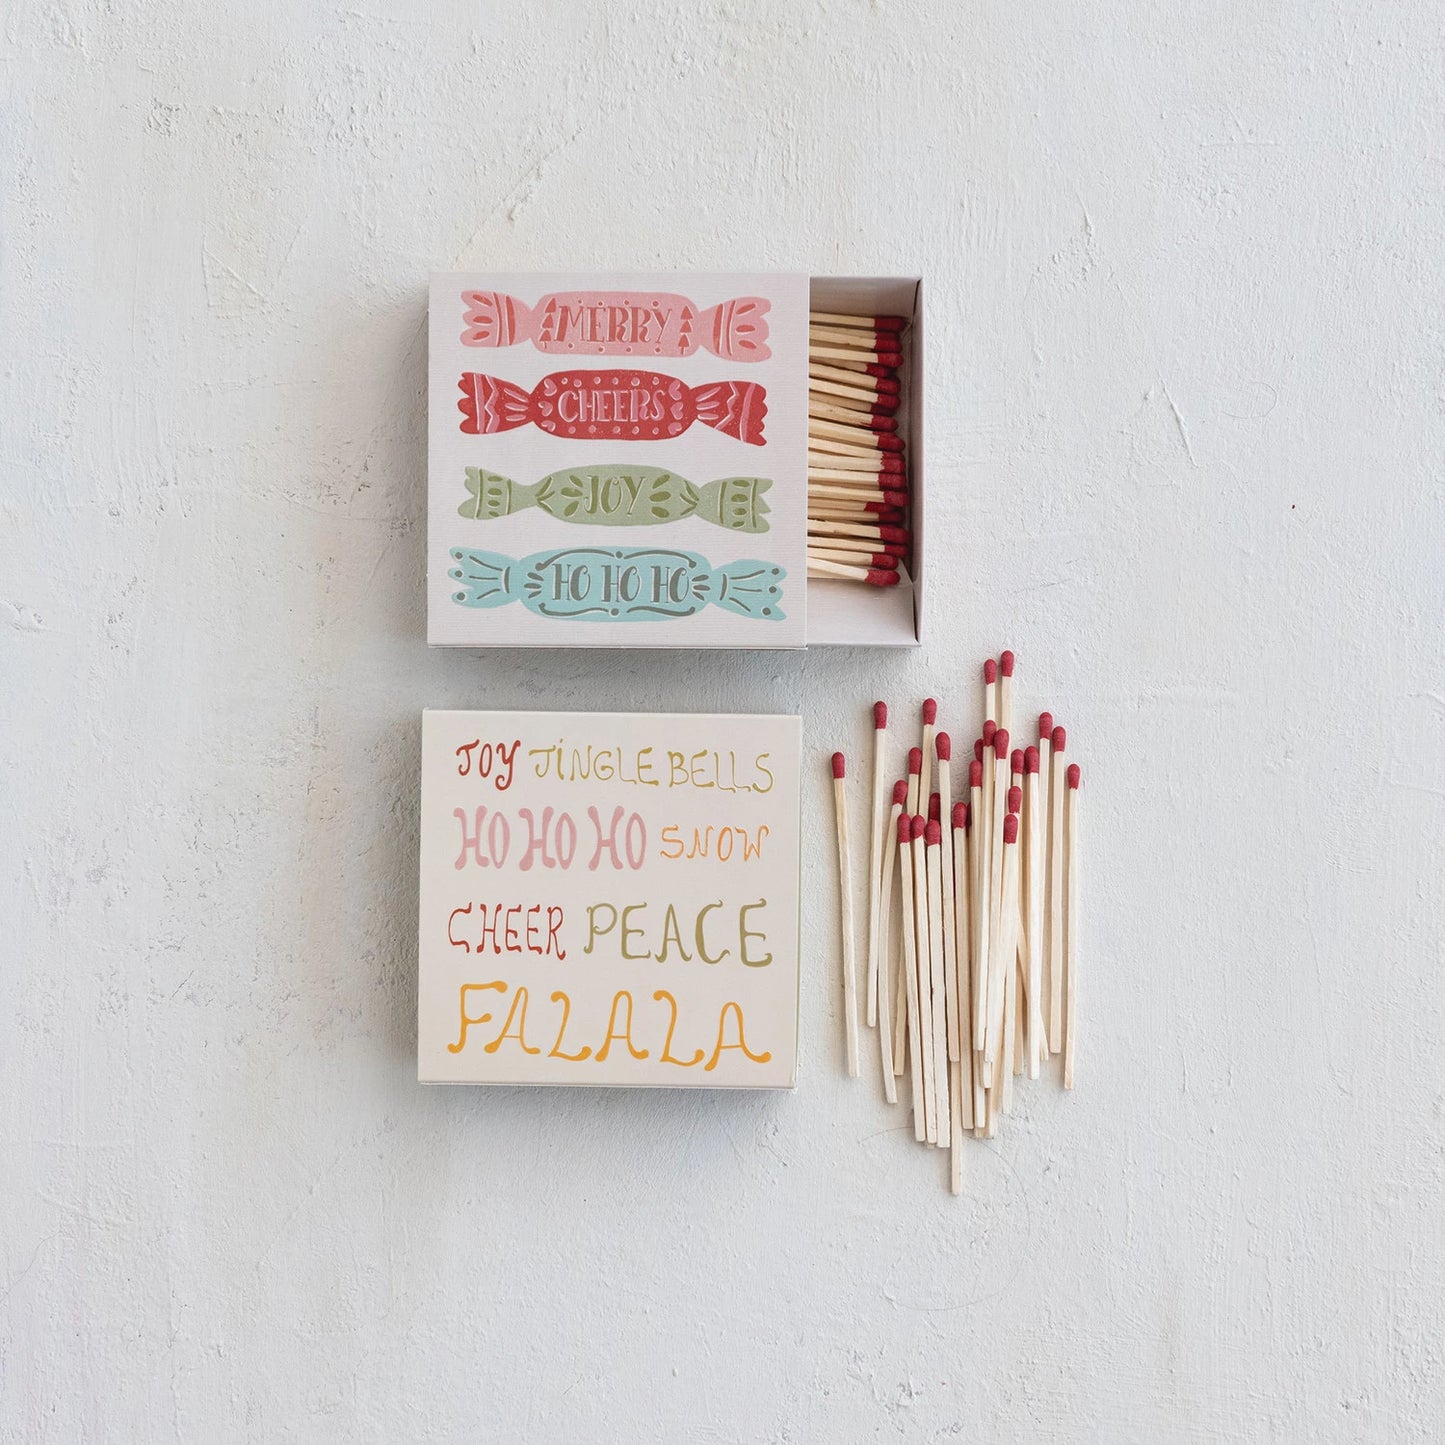 MERRY
CHEERS
JOY
HO HO HO
JOY JiNGLE BELLS
HO HO HO SNOW
CHEER PEACE
FALALALA